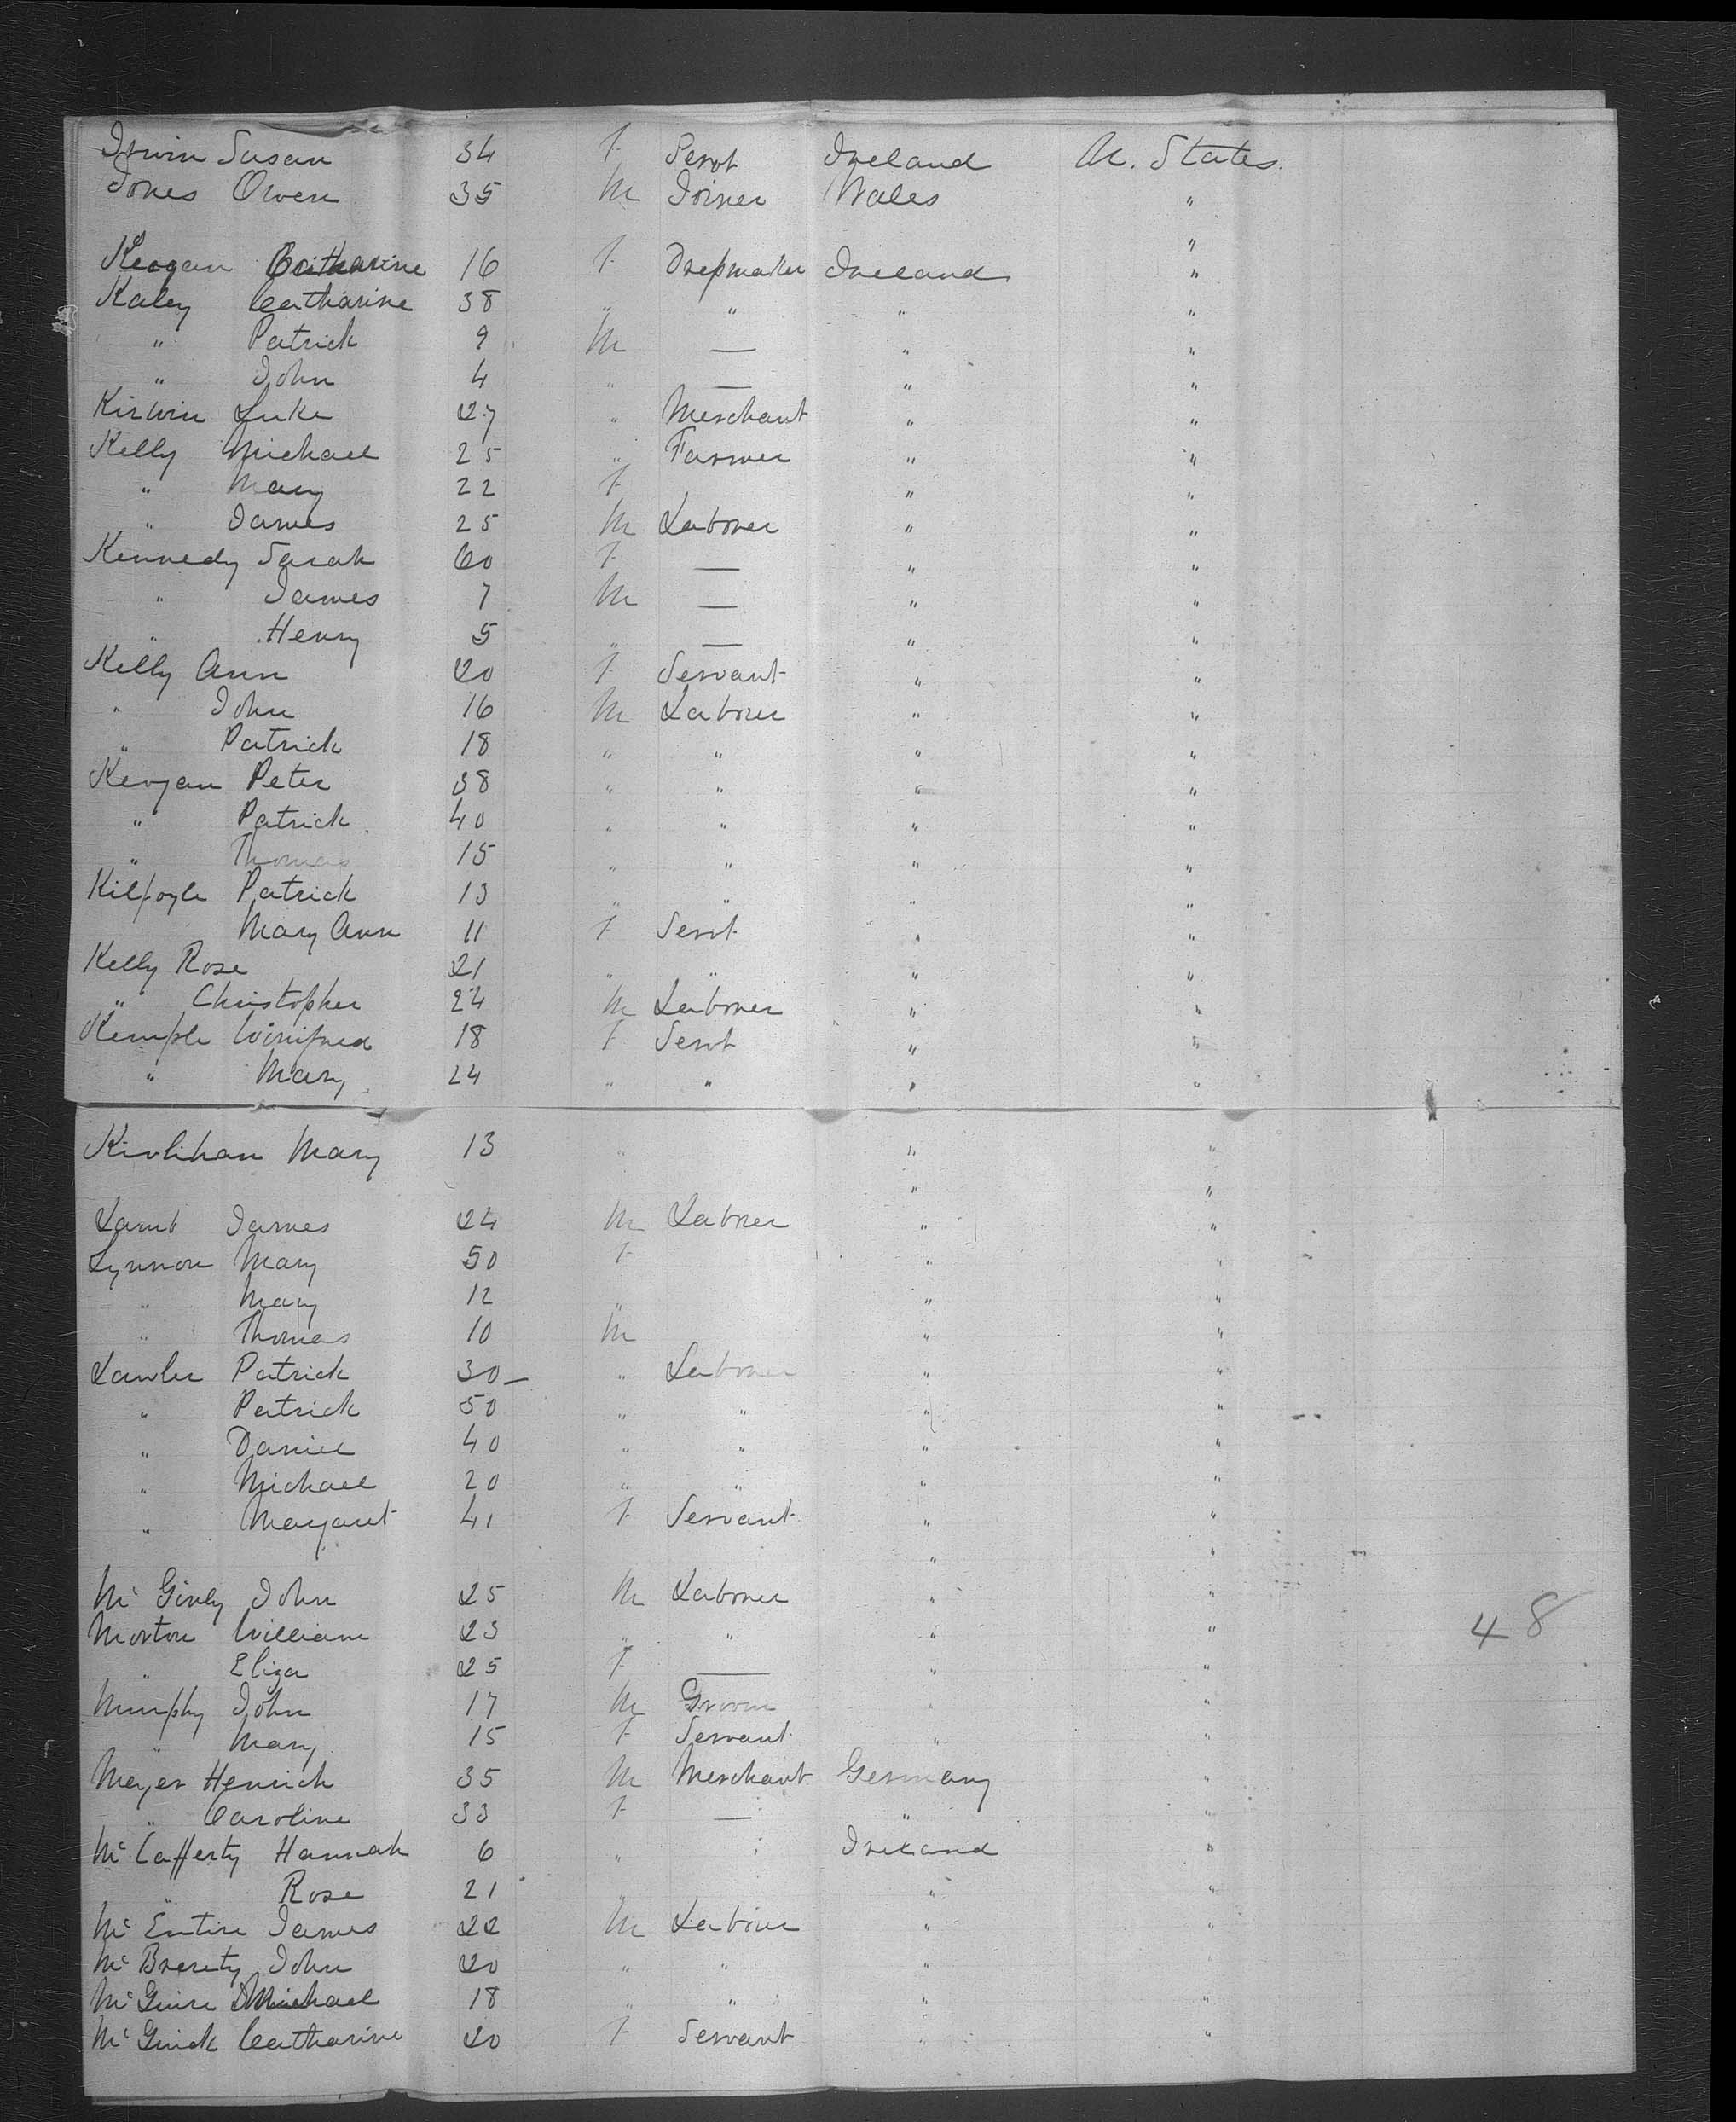 Irwin Susan 34 f Servt Ireland U. States.
Jones Owen 35 M Joiner Wales "
"
Keogan Catharine 16 f Dressmaker Ireland "
Kaley Catharine 38 " " " "
" Patrick 9 M — " "
" John 4 " — " "
Kirwin Luke 27 " Merchant " "
Kelly Michael 25 " Farmer " "
" Mary 22 f " "
" James 25 M Laborer " "
Kennedy Sarah 60 f — " "
" James 7 M — " "
" Henry 5 " — " "
Kelly Ann 20 f Servant " "
" John 16 M Laborer " "
" Patrick 18 " " " "
Keogan Peter 38 " " " "
" Patrick 40 " " " "
" Thomas 15 " " " "
Kilfoyle Patrick 13 " " " "
Mary Ann 11 f Servt " "
Kelly Rose 21 " " " "
" Christopher 24 M Laborer " "
Kemple Winifred 18 f Servt " "
" Mary 24 " " " "
Kivlihan Mary 13 " " "
" "
Lamb James 24 M Laborer " "
Lynnon Mary 50 f " "
" Mary 12 " " "
" Thomas 10 M " "
Lawler Patrick 30 — " Laborer " "
" Patrick 50 " " " "
" Daniel 40 " " " "
" Michael 20 " " " "
" Margaret 41 f Servant " "
" "
Mc Ginly John 25 M Laborer " "
Morton William 23 " " " "
" Eliza 25 f — " "
48
Murphy John 17 M Groom " "
" Mary 15 f Servant " "
Meyer Henrich 35 M Merchant Germany "
" Caroline 33 f — " "
Mc Cafferty Hannah 6 " " Ireland "
" Rose 21 " " "
Mc Entire James 22 M Laborer " "
Mc Brerity John 20 " " "
Mc Guire Michael 18 " " " "
Mc Guick Catharine 20 f Servant " "